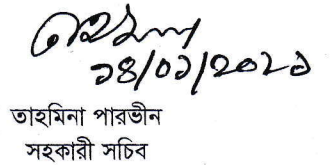 ১৪/০১/২০২১
তাহমিনা পারভীন
সহকারী সচিব